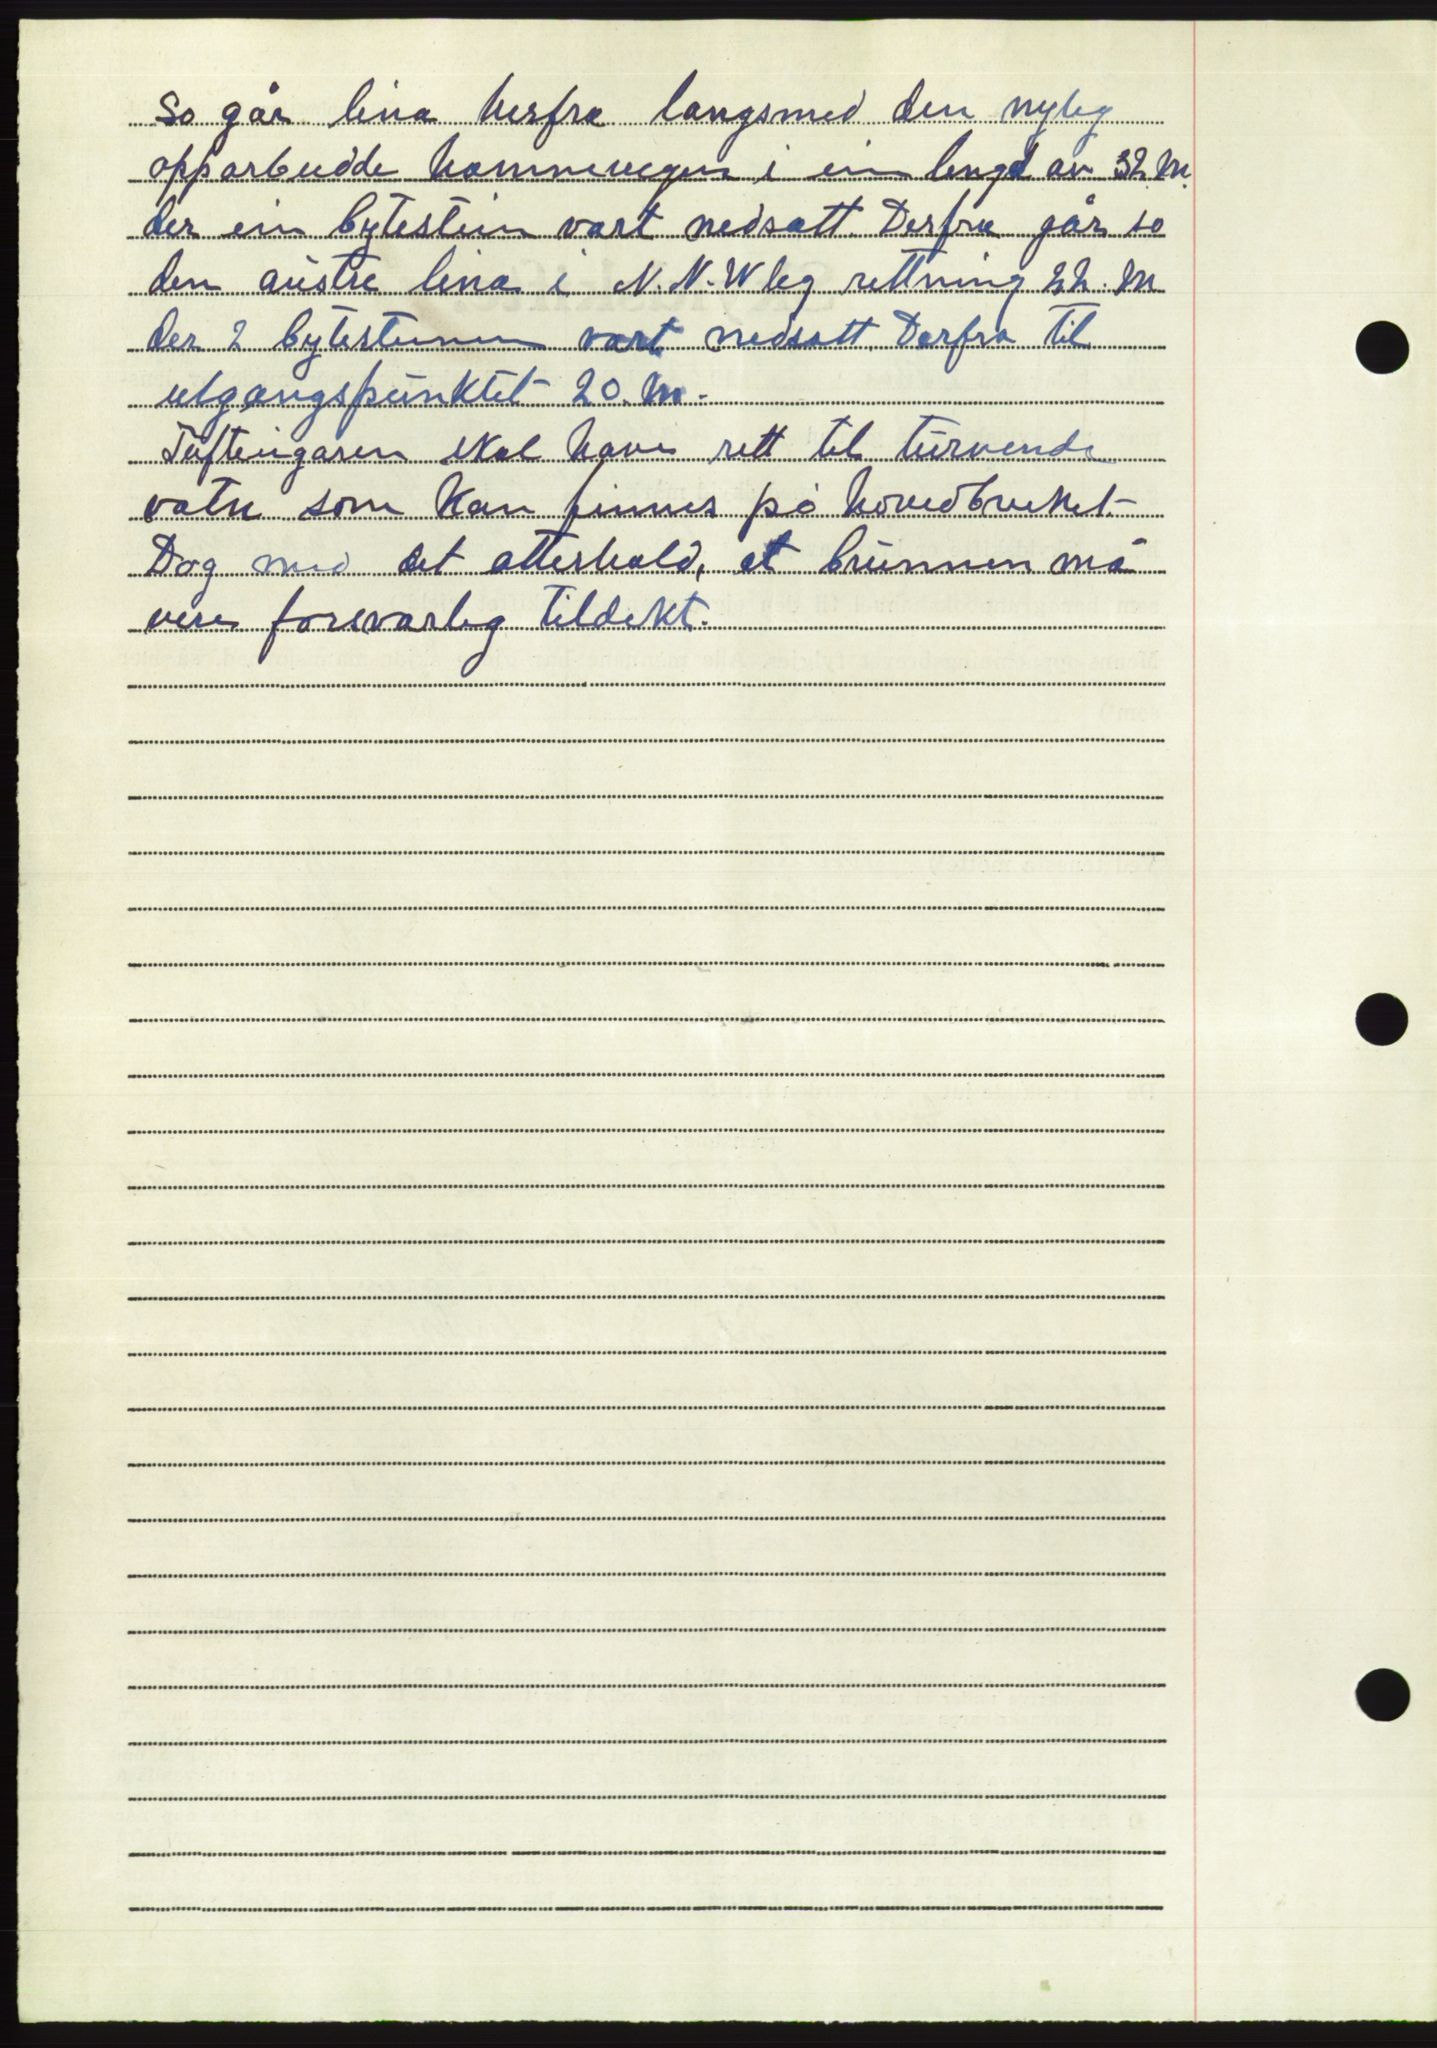 So går lina herfra langsmed den nyleg
opparbeidde hamnevegen i ein lengd av 32 m.
der ein bytestein vart nedsatt. Derfra går so
den austre lina i N.N.W leg rettning 22. m
der 2 bytesteinen vart nedsatt. Derfra til
utgangspunktet 20. m.
Tufteigaren skal have rett til turvende
vatn som kan finnes på hovedbruket.
Dog med det atterhald, at brunnen må
vere forsvarleg tildekt.